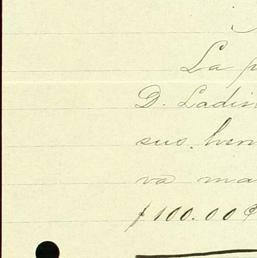 La p
D. Ladis
sus
va ma
$100.00